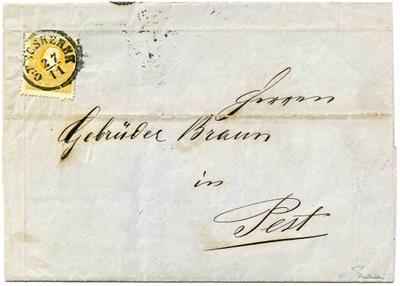 G. BECSKEREK
27
11
Herren
Gebrüder Braun
in
Pest